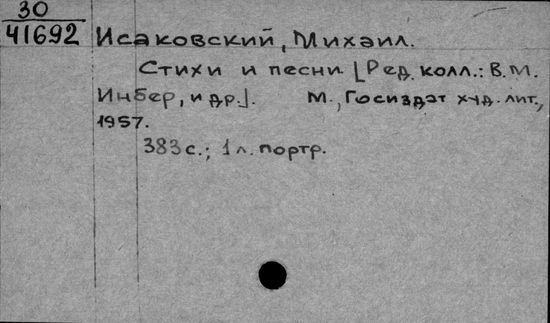 30
41692
Исаковский, Михаил.
Стихи и песни [Ред. колл.: В.М.
Инбер, и др.]. М., Госиздат худ. лит.,
1957.
383 с.; 1 л. портр.